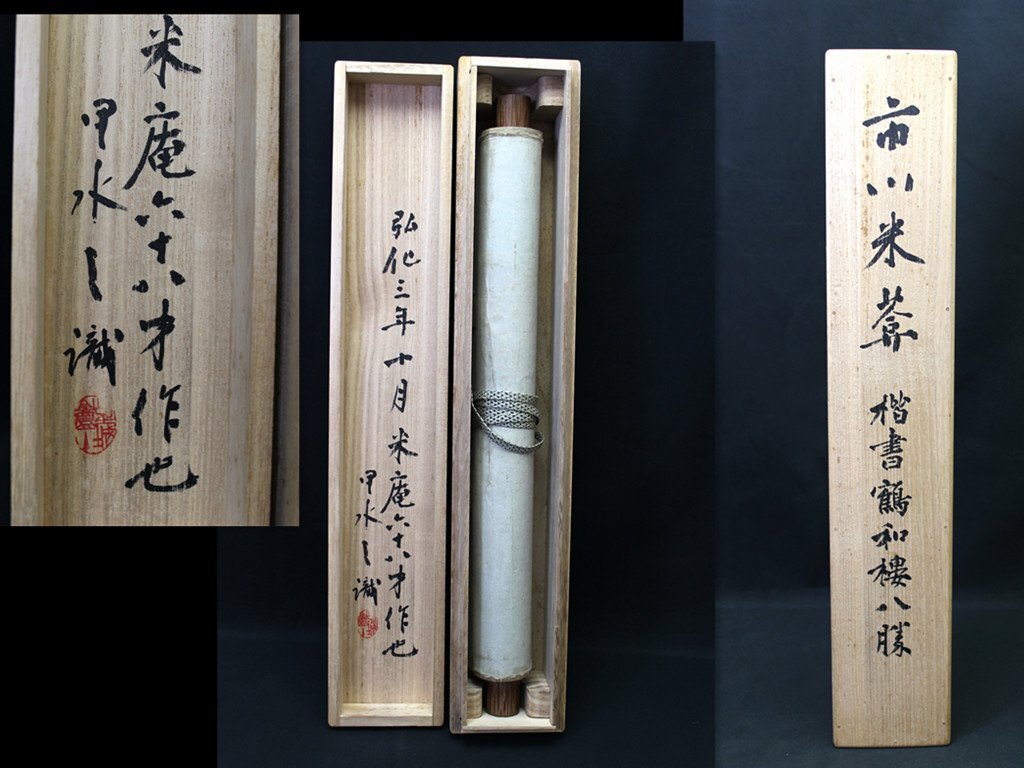 市川米葊 楷書鶴和楼八勝
弘化三年十月米庵六十八才作也
甲水之識
米庵六十八才作也
甲水之識